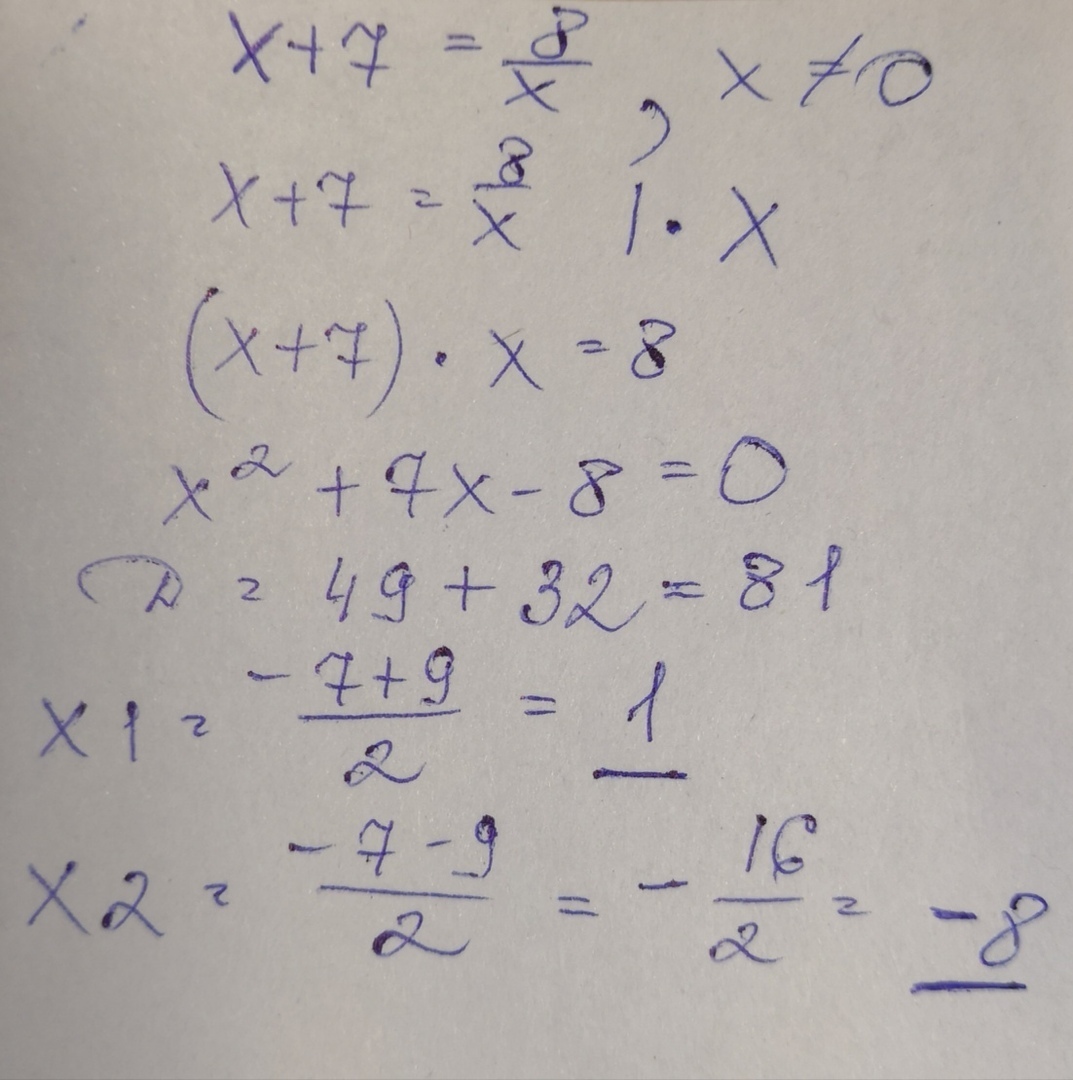 x+7 = 8/x , x ≠ 0
x+7 = 8/x | · x
(x+7) · x = 8
x² + 7x - 8 = 0
D = 49 + 32 = 81
x1 = (-7+9)/2 = 1
x2 = (-7-9)/2 = -16/2 = -8